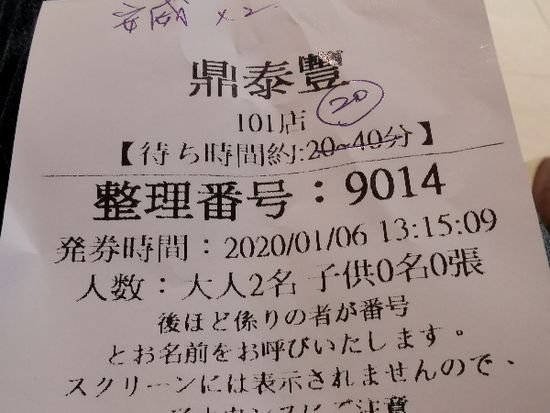 安威 x2
鼎泰豐
20
101店
【待ち時間約:20~40分】
整理番号：9014
発券時間：2020/01/06 13:15:09
人数：大人2名 子供0名0張
後ほど係りの者が番号
とお名前をお呼びいたします。
スクリーンには表示されませんので、